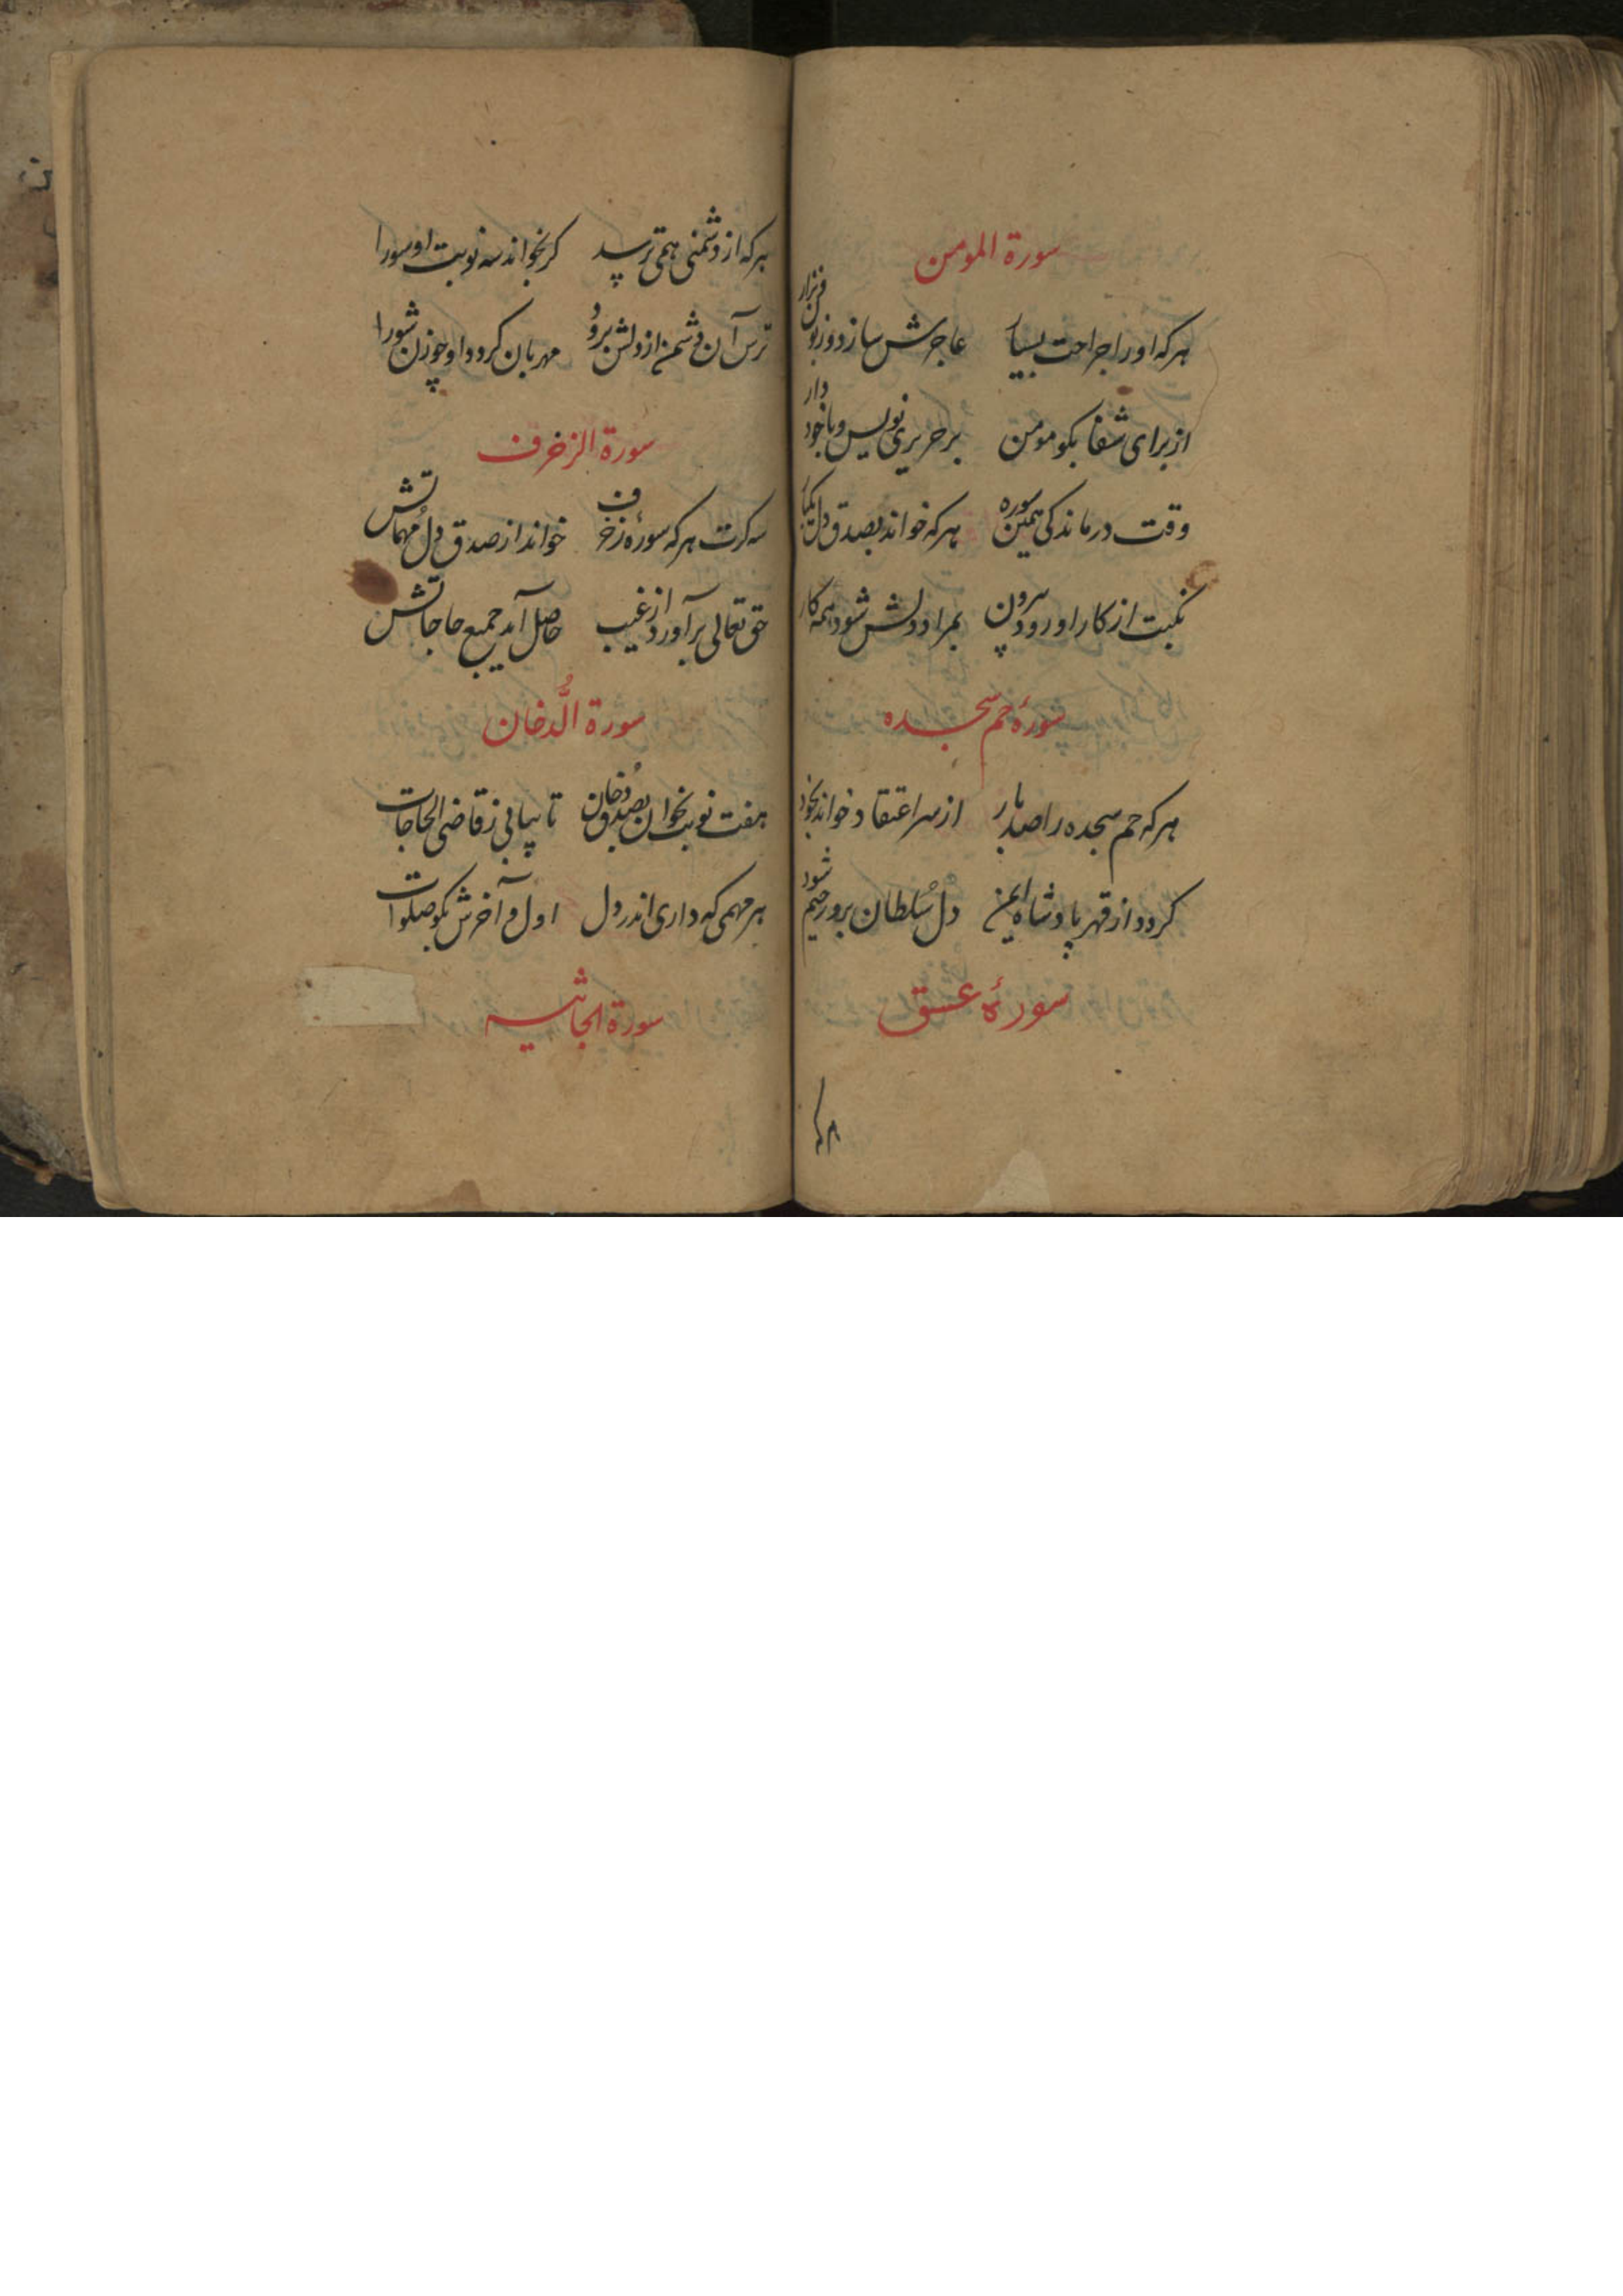 سورة المومن
هرکه او را جراحت بسیار عاجزش سازد و زبون
از برای شفا بکو مومن بر حریری نویس و با خود دار
وقت درماندکی همین سوره هرکه خواند بصدق دل یکبار
نکبت از کار او رود بیرون بمراد دلش شود همه کار
سورهٔ حم سجده
هرکه حم سجده را صد بار از سر اعتقاد خواند
کردد از قهر پادشاه ایمن دل سُلطان برو رحیم شود
سورهٔ عسق
هرکه
هرکه از دشمنی همی ترسد کر بخواند سه نوبت او سورا
ترس آن دشمن از دلش برود مهربان کردد او چو زن شورا
سورة الزخرف
سه کرت هرکه سورهٔ زخرف خواند از صدق دل مهماتش
حق تعالی برآورد از غیب حاصل آید جمیع حاجاتش
سورة الُّدخان
هفت نوبت بخوان بصدق دُخان تا بیابی ز قاضی الحاجات
هر مهمی که داری اندر دل اول و آخرش بکو صلوات
سورة الجاثیه